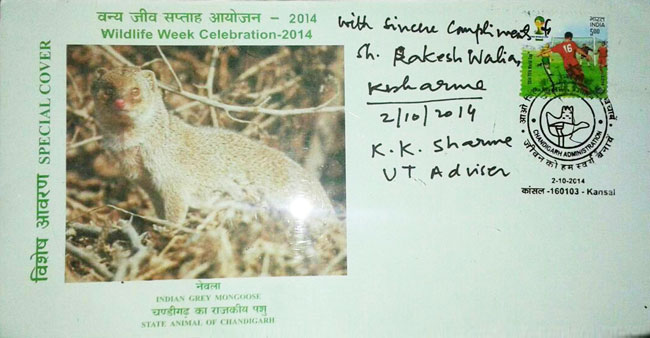 वन्य जीव सप्ताह आयोजन – 2014
Wildlife Week Celebration-2014
विशेष आवरण SPECIAL COVER
with Sincere Compliments to
Sh. Rakesh Walia,
KKSharma
2/10/2014
K.K. Sharma
UT Adviser
भारत
INDIA
500
16
CHANDIGARH ADMINISTRATION
जीवन को हम स्वर्ग बनायें
2-10-2014
कांसल -160103 - Kansal
नेवला
INDIAN GREY MONGOOSE
चण्डीगढ़ का राजकीय पशु
STATE ANIMAL OF CHANDIGARH